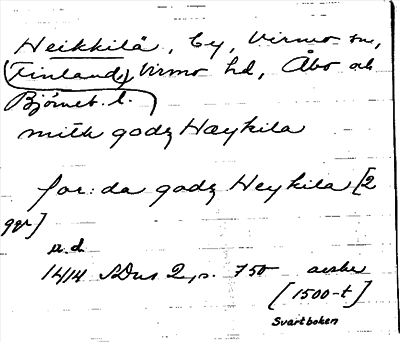 Heikkilä, by, Virmo sn,
(Finland) Virmo hd, Åbo och
Björneb. l.
mith godz Haykila
for: da godz Heykila [2
ggr]
u.d.
1414 SDns 2, s. 750 avskr
[1500-t]
Svartboken